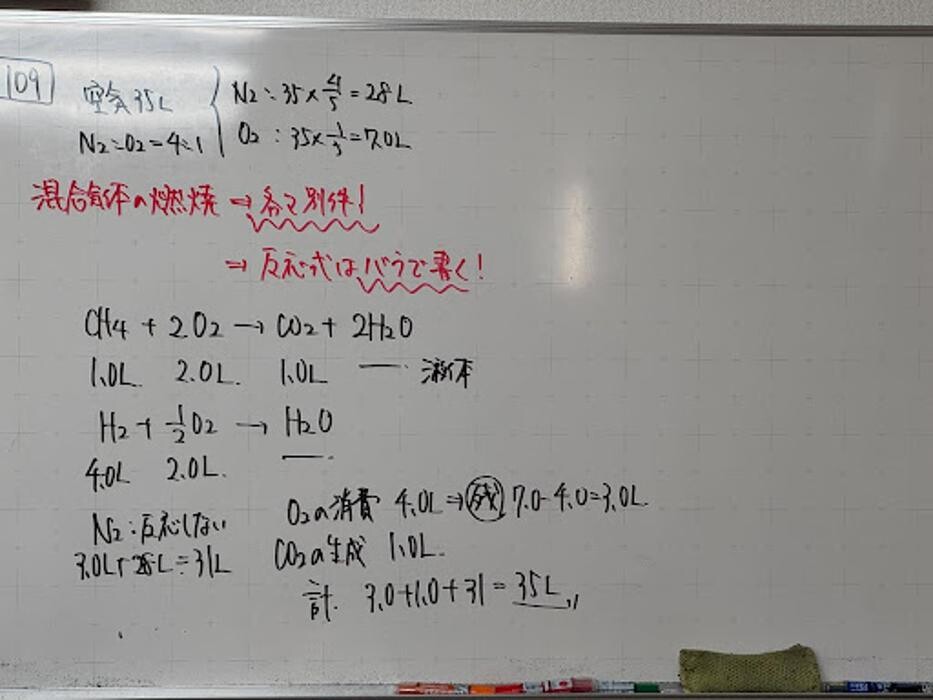 109
空気35L
N2:O2=4:1
N2:35×4/5=28L
O2:35×1/5=7.0L
混合気体の燃焼→各々別件!
→反応式はバラで書く!
CH4 + 2O2 → CO2 + 2H2O
1.0L 2.0L. 1.0L — 液体
H2 + 1/2O2 → H2O
4.0L 2.0L. —
N2:反応しない
3.0L+28L=31L
O2の消費 4.0L⇒残 7.0-4.0=3.0L
CO2の生成 1.0L.
計. 3.0+1.0+31=35L